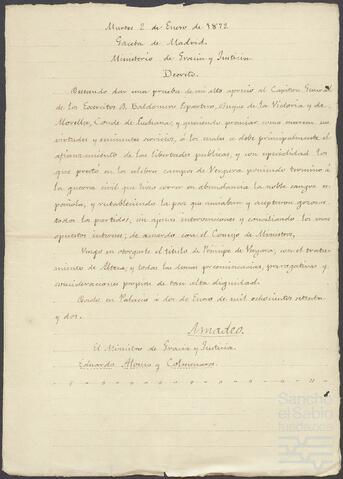 Martes 2 de Enero de 1872
Gaceta de Madrid.
Ministerio de Gracia y Justicia
Decreto.
Deseando dar una prueba de mi alto aprecio al Capitan General
de los Ejercitos D. Baldomero Espartero, Duque de la Victoria y de
Morella, Conde de Luchana; y queriendo premiar como merecen sus
virtudes y eminentes servicios, á los cuales se debe principalmente el
afianzamiento de las libertades publicas, y con especialidad los
que prestó en los celebres campos de Vergara poniendo termino á
la guerra civil que hizo correr en abundancia la noble sangre es-
pañola, y restableciendo la paz que ansiaban y aceptaron gozosos
todos los partidos, sin ajenas intervenciones y conciliando los mas
opuestos intereses; de acuerdo con el Consejo de Ministros,
Vengo en otorgarle el titulo de Principe de Vergara, con el trata-
miento de Alteza, y todas las demas preeminencias, prerogativas y
consideraciones propias de tan alta dignidad.
Dado en Palacio á dos de Enero de mil ochocientos setenta
y dos.
Amadeo.
El Ministro de Gracia y Justicia.
Eduardo Alonso y Colmenares.
Sancho
el Sabio
fundazioa